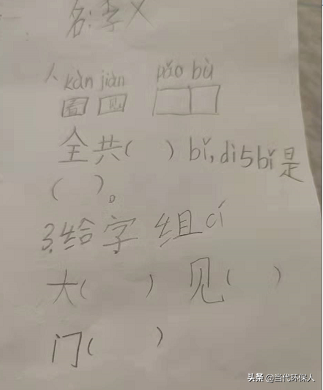 名:李X
kàn jiàn pǎo bù
看 见
全共( )bǐ,dì5bǐ是
( )。
3.给字组cí
大( ) 见( )
门( )
头条 @当代环保人